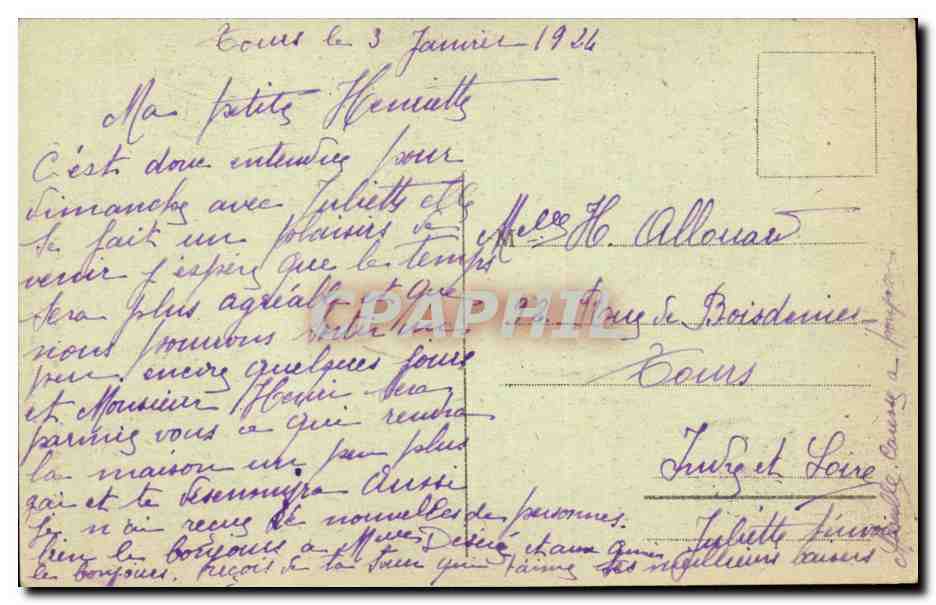 Tours le 3 Janvier 1924
Ma petite Henriette
C'est donc entendue pour
dimanche avec Juliette elle
se fait un plaisirs de
venir j'espère que le temps
sera plus agréable et que
nous pourrons sortir un
peu encore quelques jours
et Monsieur Henri sera
parmis vous ce qui rendra
la maison un peu plus
gai et te desennuira aussi
Je n'ai reçue de nouvelles de personnes.
le bonjours a Melle Desiré et aux
le bonjours. reçois de ta Soeur qui t'aime ses meilleurs baisers
Melle H. Allouard
22 Rue de Boisdenier
Tours
Indre et Loire
Juliette
CPARAMA